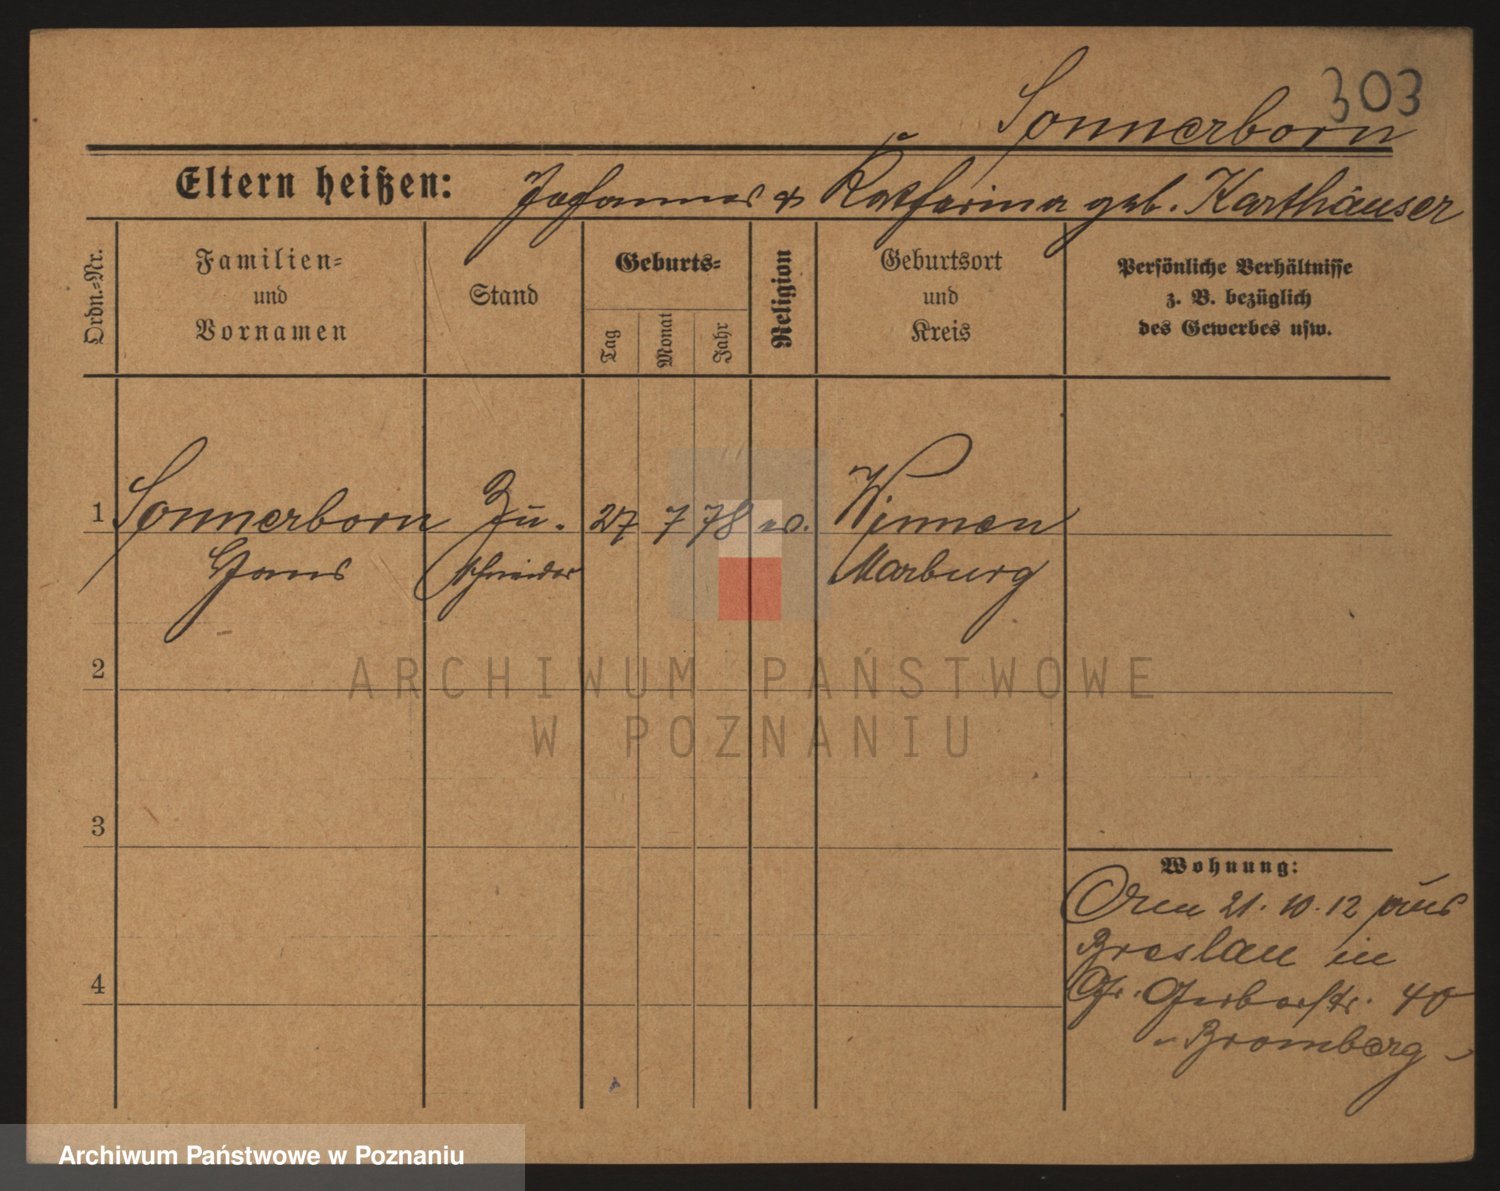 303
Sonnerborn
Eltern heißen: Johannes & Katharina geb. Karthäuser
Ordn.-Nr.
Familien-
und
Vornamen
Stand
Geburts-
Tag
Monat
Jahr
Religion
Geburtsort
und
Kreis
Persönliche Verhältnisse
z. B. bezüglich
des Gewerbes usw.
1 Sonnerborn Zu- 27 7 78 ev. Winnen
Hans schneider Marburg
2
3
4
Wohnung:
Den 21. 10. 12 aus
Breslau in
Gr. Gerberstr. 40
Bromberg
ARCHIWUM PAŃSTWOWE
W POZNANIU
Archiwum Państwowe w Poznaniu